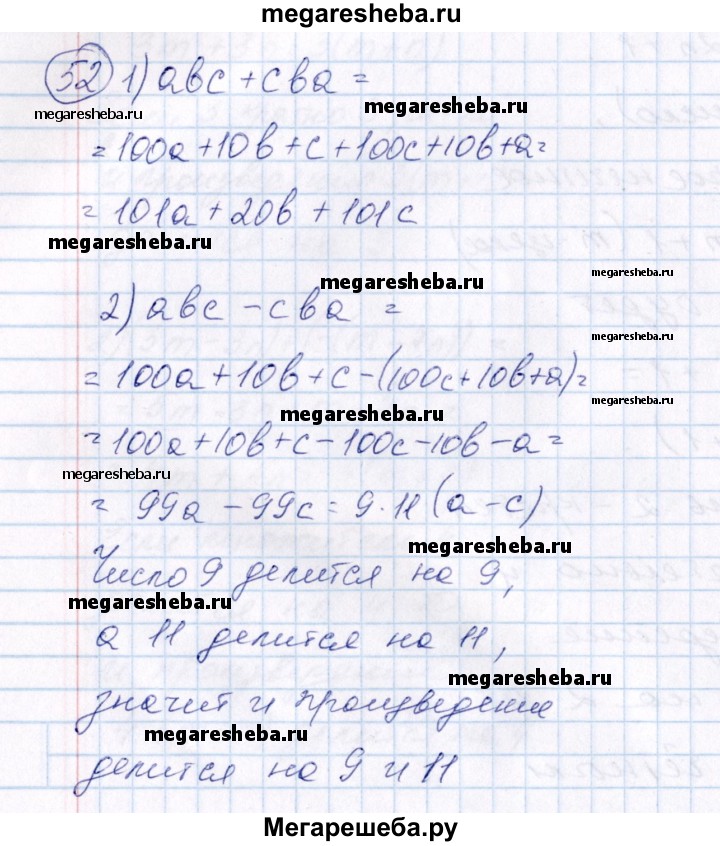 megaresheba.ru
52 1) авс + сва =
megaresheba.ru
megaresheba.ru
= 100а + 10в + с + 100с + 10в + а =
= 101а + 20в + 101с
megaresheba.ru
megaresheba.ru
megaresheba.ru
2) авс - сва =
megaresheba.ru
= 100а + 10в + с - (100с + 10в + а) =
megaresheba.ru
megaresheba.ru
= 100а + 10в + с - 100с - 10в - а =
megaresheba.ru
= 99а - 99с = 9 · 11 (а - с)
megaresheba.ru
Число 9 делится на 9,
megaresheba.ru
megaresheba.ru
а 11 делится на 11,
megaresheba.ru
значит и произведение
megaresheba.ru
делится на 9 и 11
Мегарешеба.ру